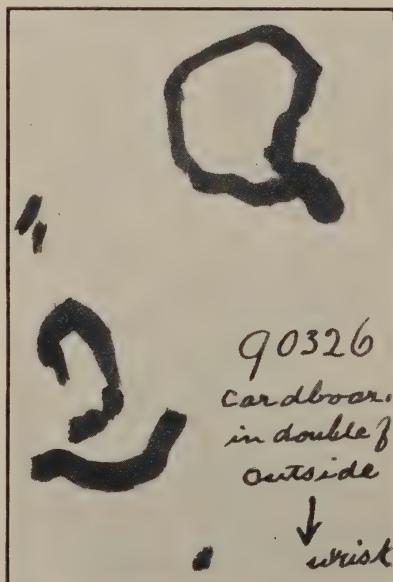 90326
cardboar
in double f
outside
wrist